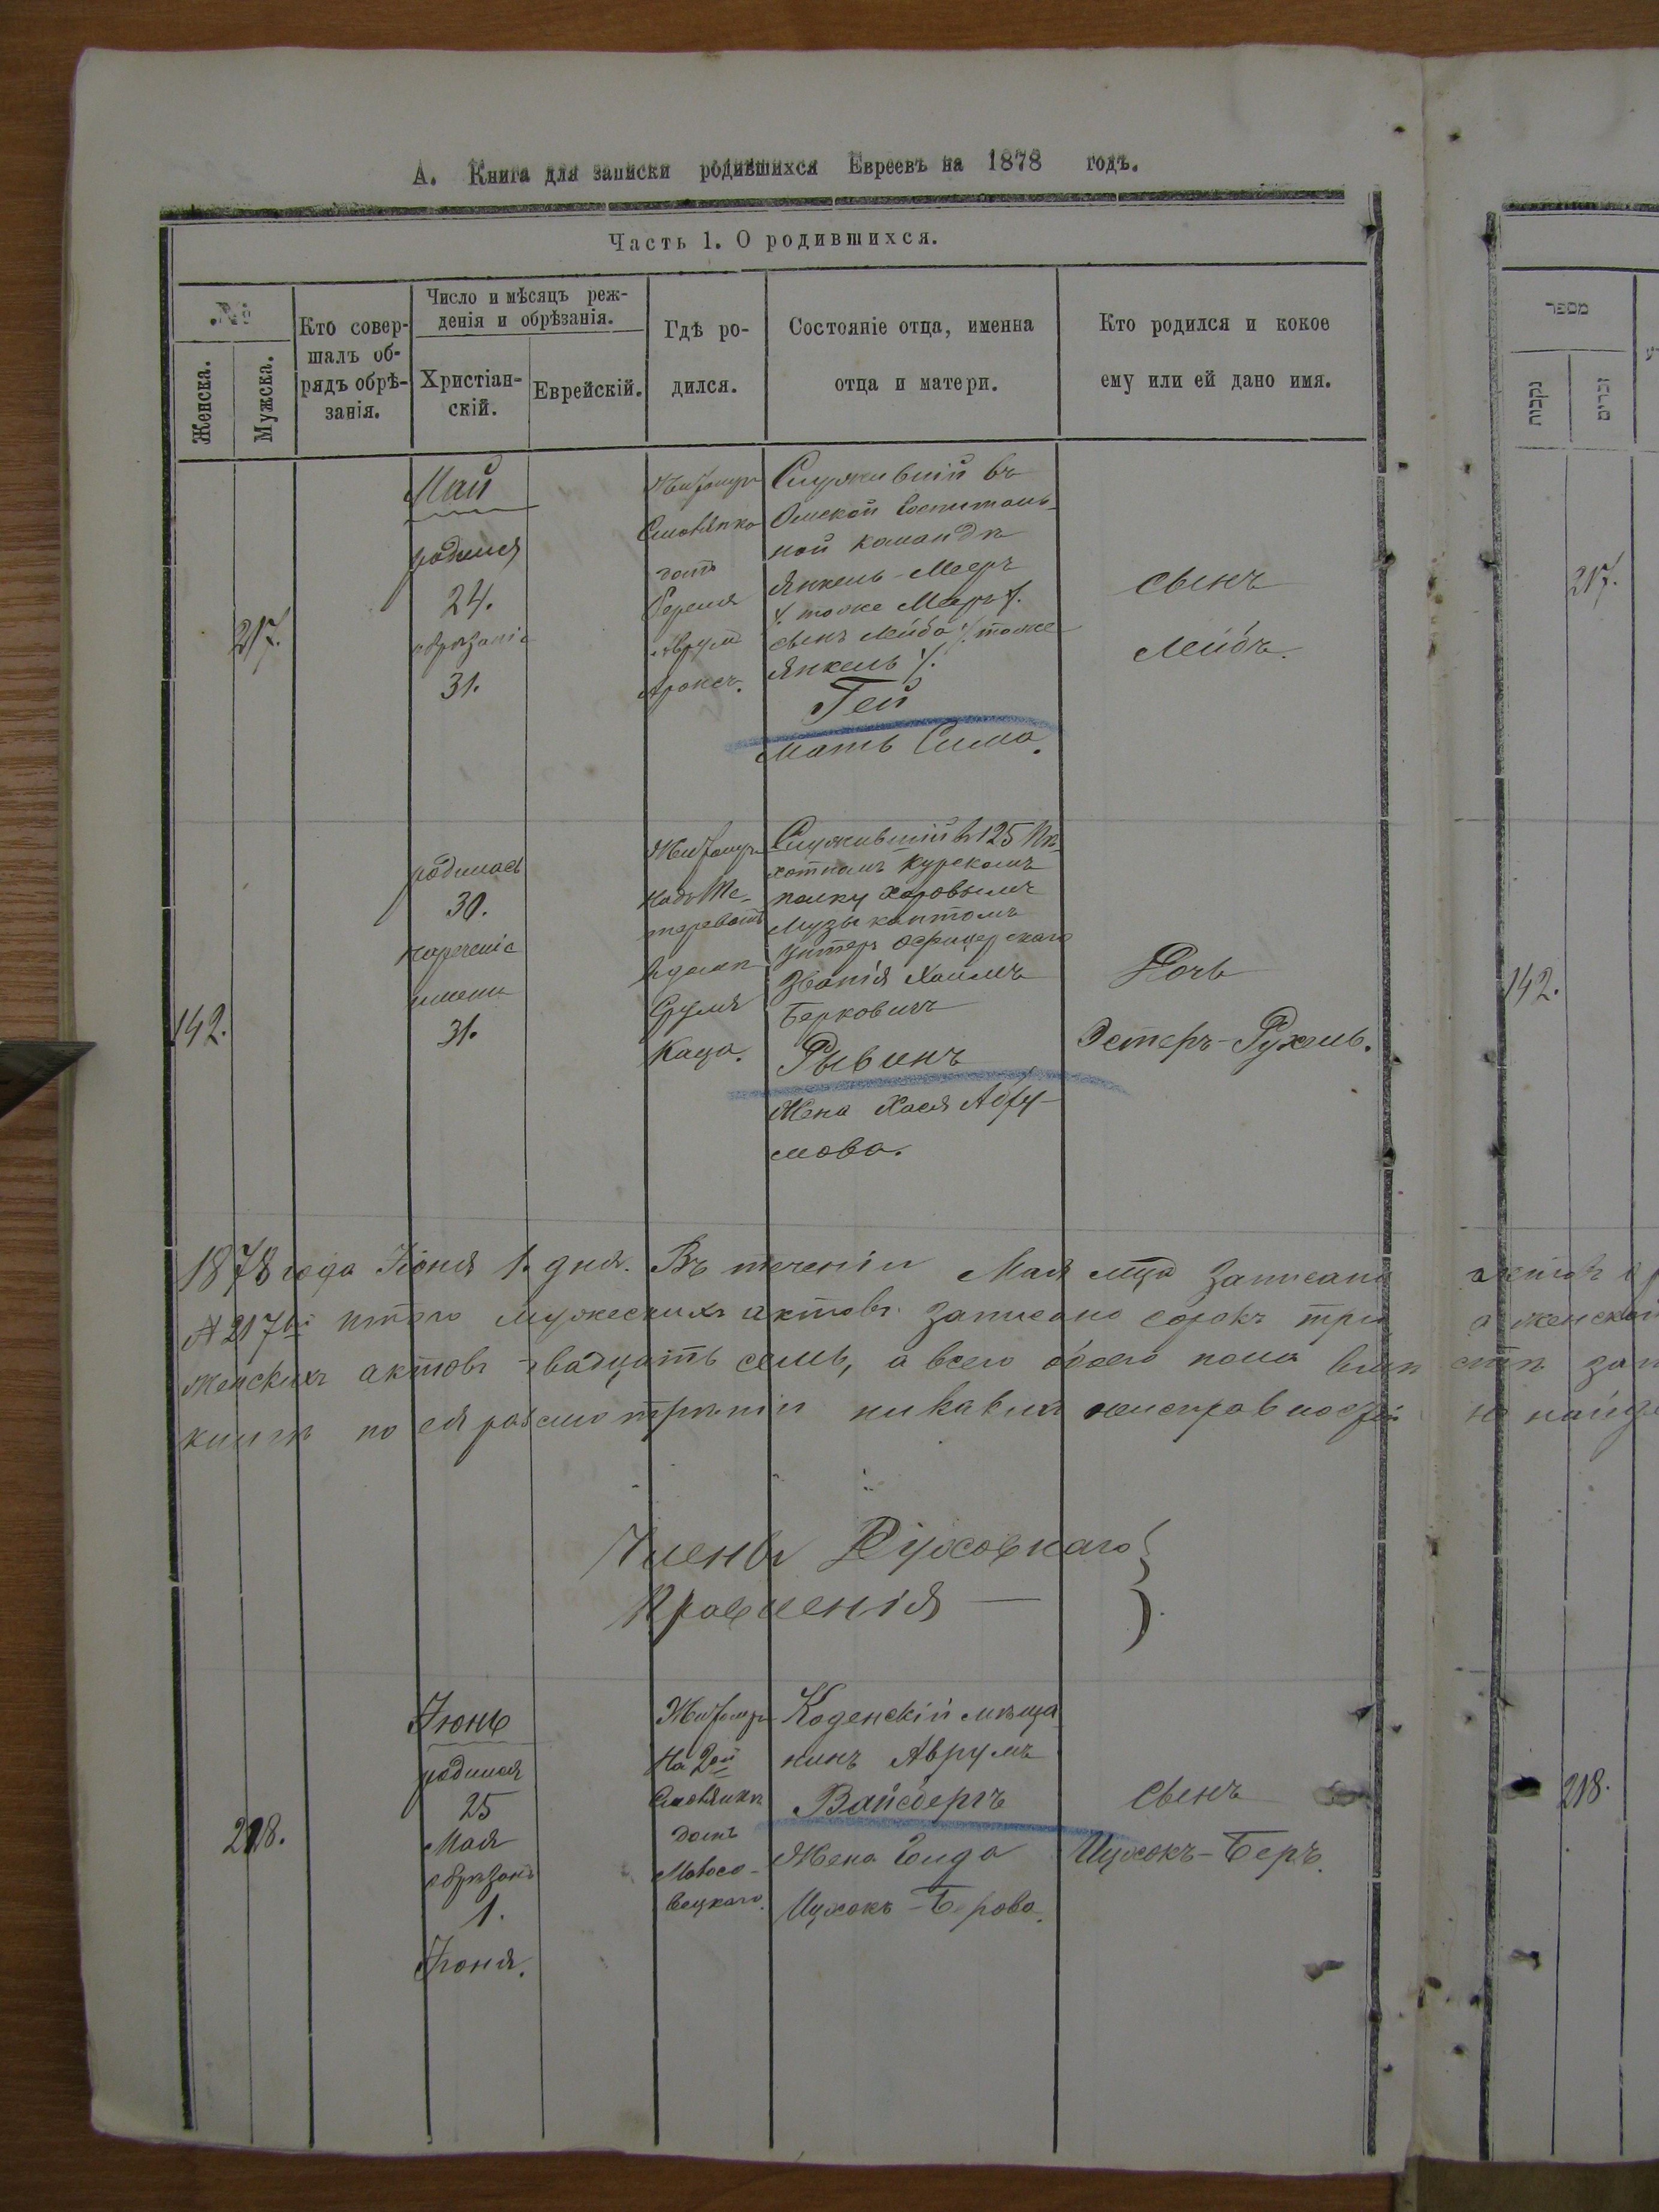 А. Книга для записки родившихся Евреевъ на 1878 годъ.
Часть 1. О родившихся.
№
Женска.
Мужска.
Кто совер-
шалъ об-
рядъ обрѣ-
занія.
Число и мѣсяцъ реж-
денія и обрѣзанія.
Христіан-
скій.
Еврейскій.
Гдѣ ро-
дился.
Состояніе отца, именна
отца и матери.
Кто родился и кокое
ему или ей дано имя.
217.
Май
родился
24.
обрѣзаніе
31.
Житомиръ
домъ
Служившій въ
Омской воспиталь-
ной командѣ
Янкель-Мееръ
тоже Мееръ
сынъ Лейба тоже
Янкель
Гей
мать Сима.
сынъ
Лейбъ.
142.
родилась
30.
нареченіе
имени
31.
Житомиръ
надъ Те-
теревомъ
въ домѣ
Сруля
Каца.
Служившій въ 125 Пѣ-
хотномъ Курскомъ
полку хоровымъ
Музыкантомъ
унтеръ офицерскаго
Званія Хаимъ
Берковичъ
Рывинъ
Жена Хася Абру-
мова.
Дочь
Эстеръ-Рухель.
1878 года Іюня 1. дня. Въ теченіи Мая мца Записано
№ 217й итого мужескихъ актовъ записано сорокъ три
женскихъ актовъ двадцать семь, а всего обоего пола
книги по ея разсмотрѣніи никакихъ неисправностей
Члены Духовнаго
Правленія —
218.
Іюнь
родился
25
Мая
обрѣзанъ
1.
Іюня.
Житомиръ
на 2ой
домъ
Коденскій мѣща
нинъ Аврумъ
Вайсбергъ
Жена Голда
Ицхокъ-Берова.
сынъ
Ицхокъ-Беръ.
מספר
נקבות
זכרים
217.
142.
218.